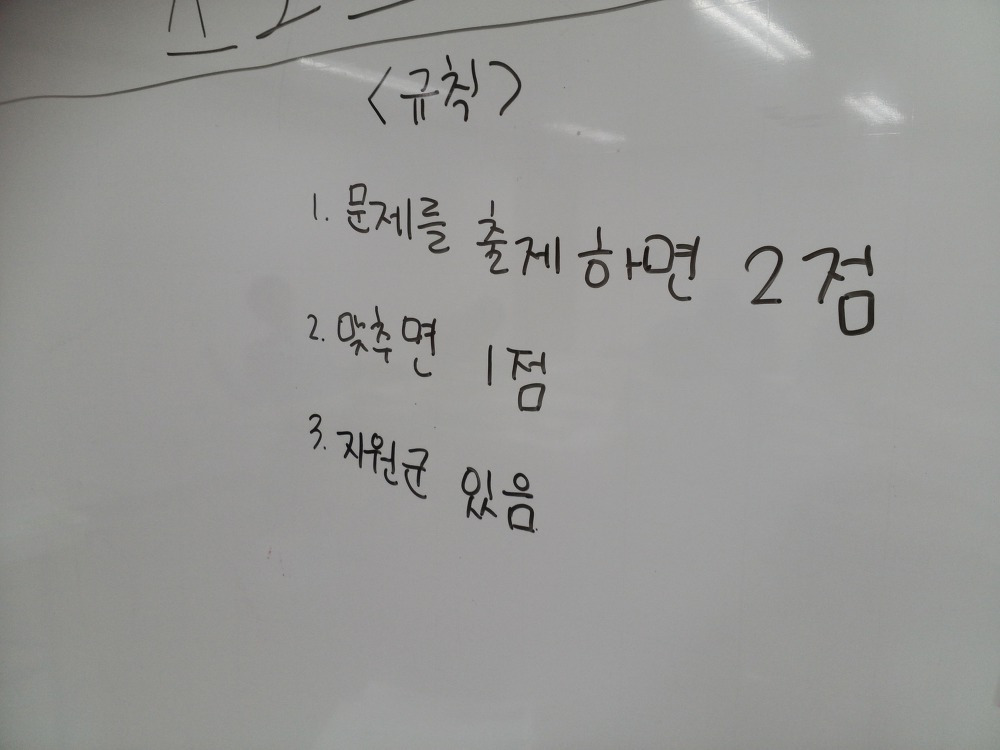 <규칙>
1. 문제를 출제하면 2점
2. 맞추면 1점
3. 지원군 있음